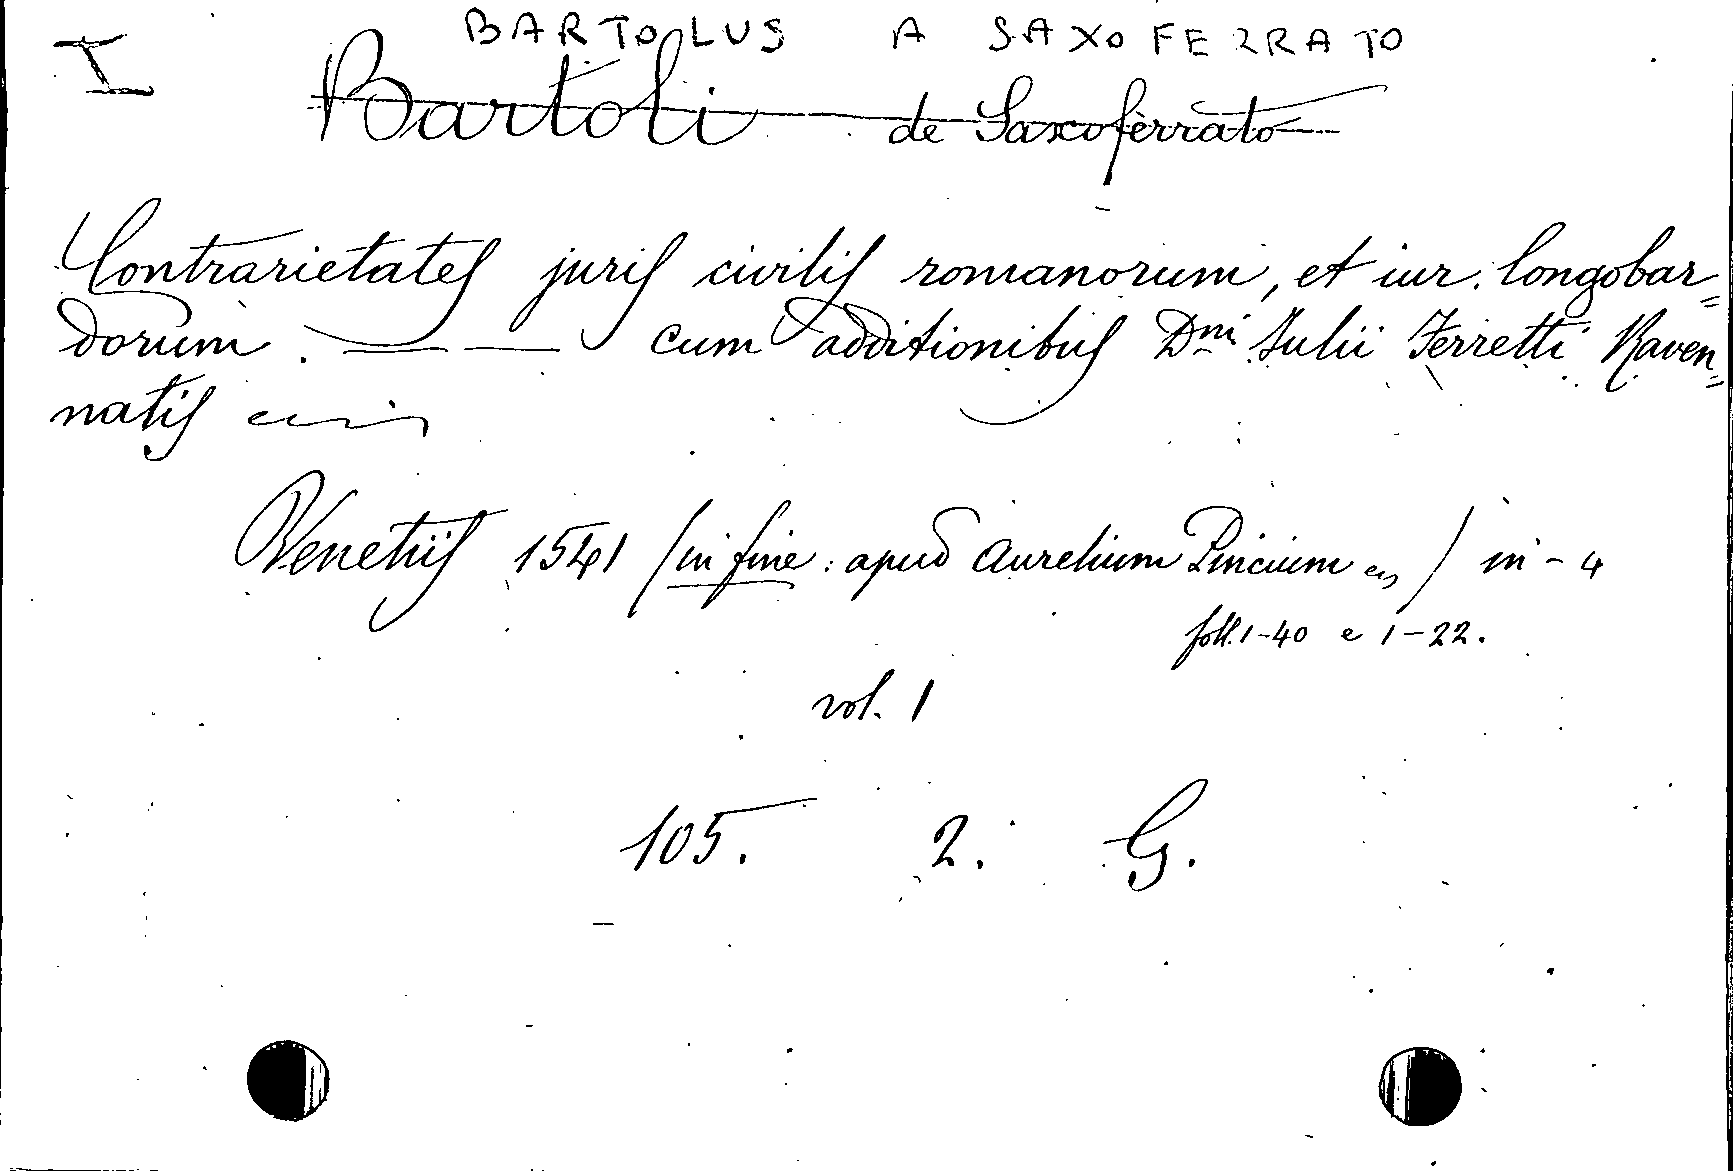 BARTOLUS A SAXOFERRATO
I
Bartoli de Saxoferrato
Contrarietates juris civilis romanorum, et iur. longobar=
dorum. — — cum additionibus Dni Iulii Ferretti Raven=
natis
Venetiis 1541 (in fine: apud Aurelium Pincium) in-4
foll. 1-40 e 1-22.
vol. 1
105. 2. G.